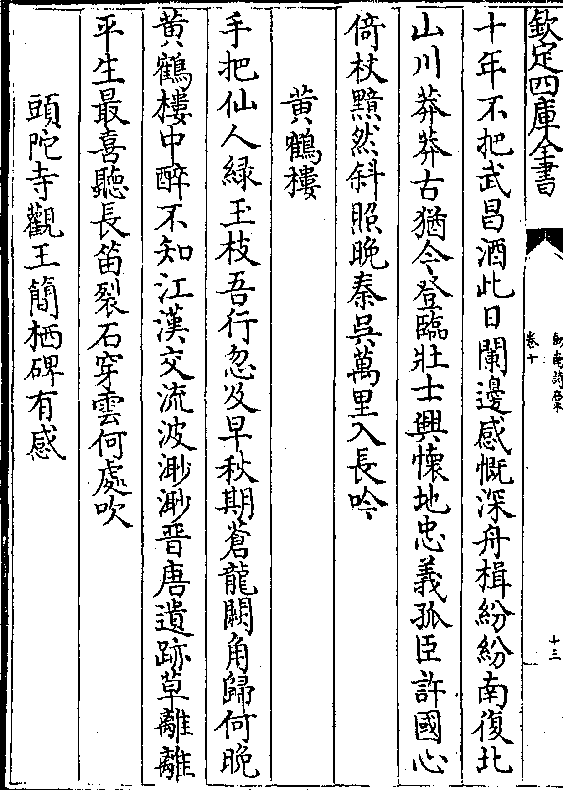 欽定四庫全書
劍南詩藁
卷十
十三
十年不把武昌酒此日闌邊感慨深舟楫紛紛南復北
山川莽莽古猶今登臨壯士興懷地忠義孤臣許國心
倚杖黯然斜照晚秦吳萬里入長吟
黄鶴樓
手把仙人緑玉枝吾行忽及早秋期蒼龍闕角歸何晚
黄鶴樓中醉不知江漢交流波渺渺晉唐遺跡草離離
平生最喜聽長笛裂石穿雲何處吹
頭陀寺觀王簡栖碑有感